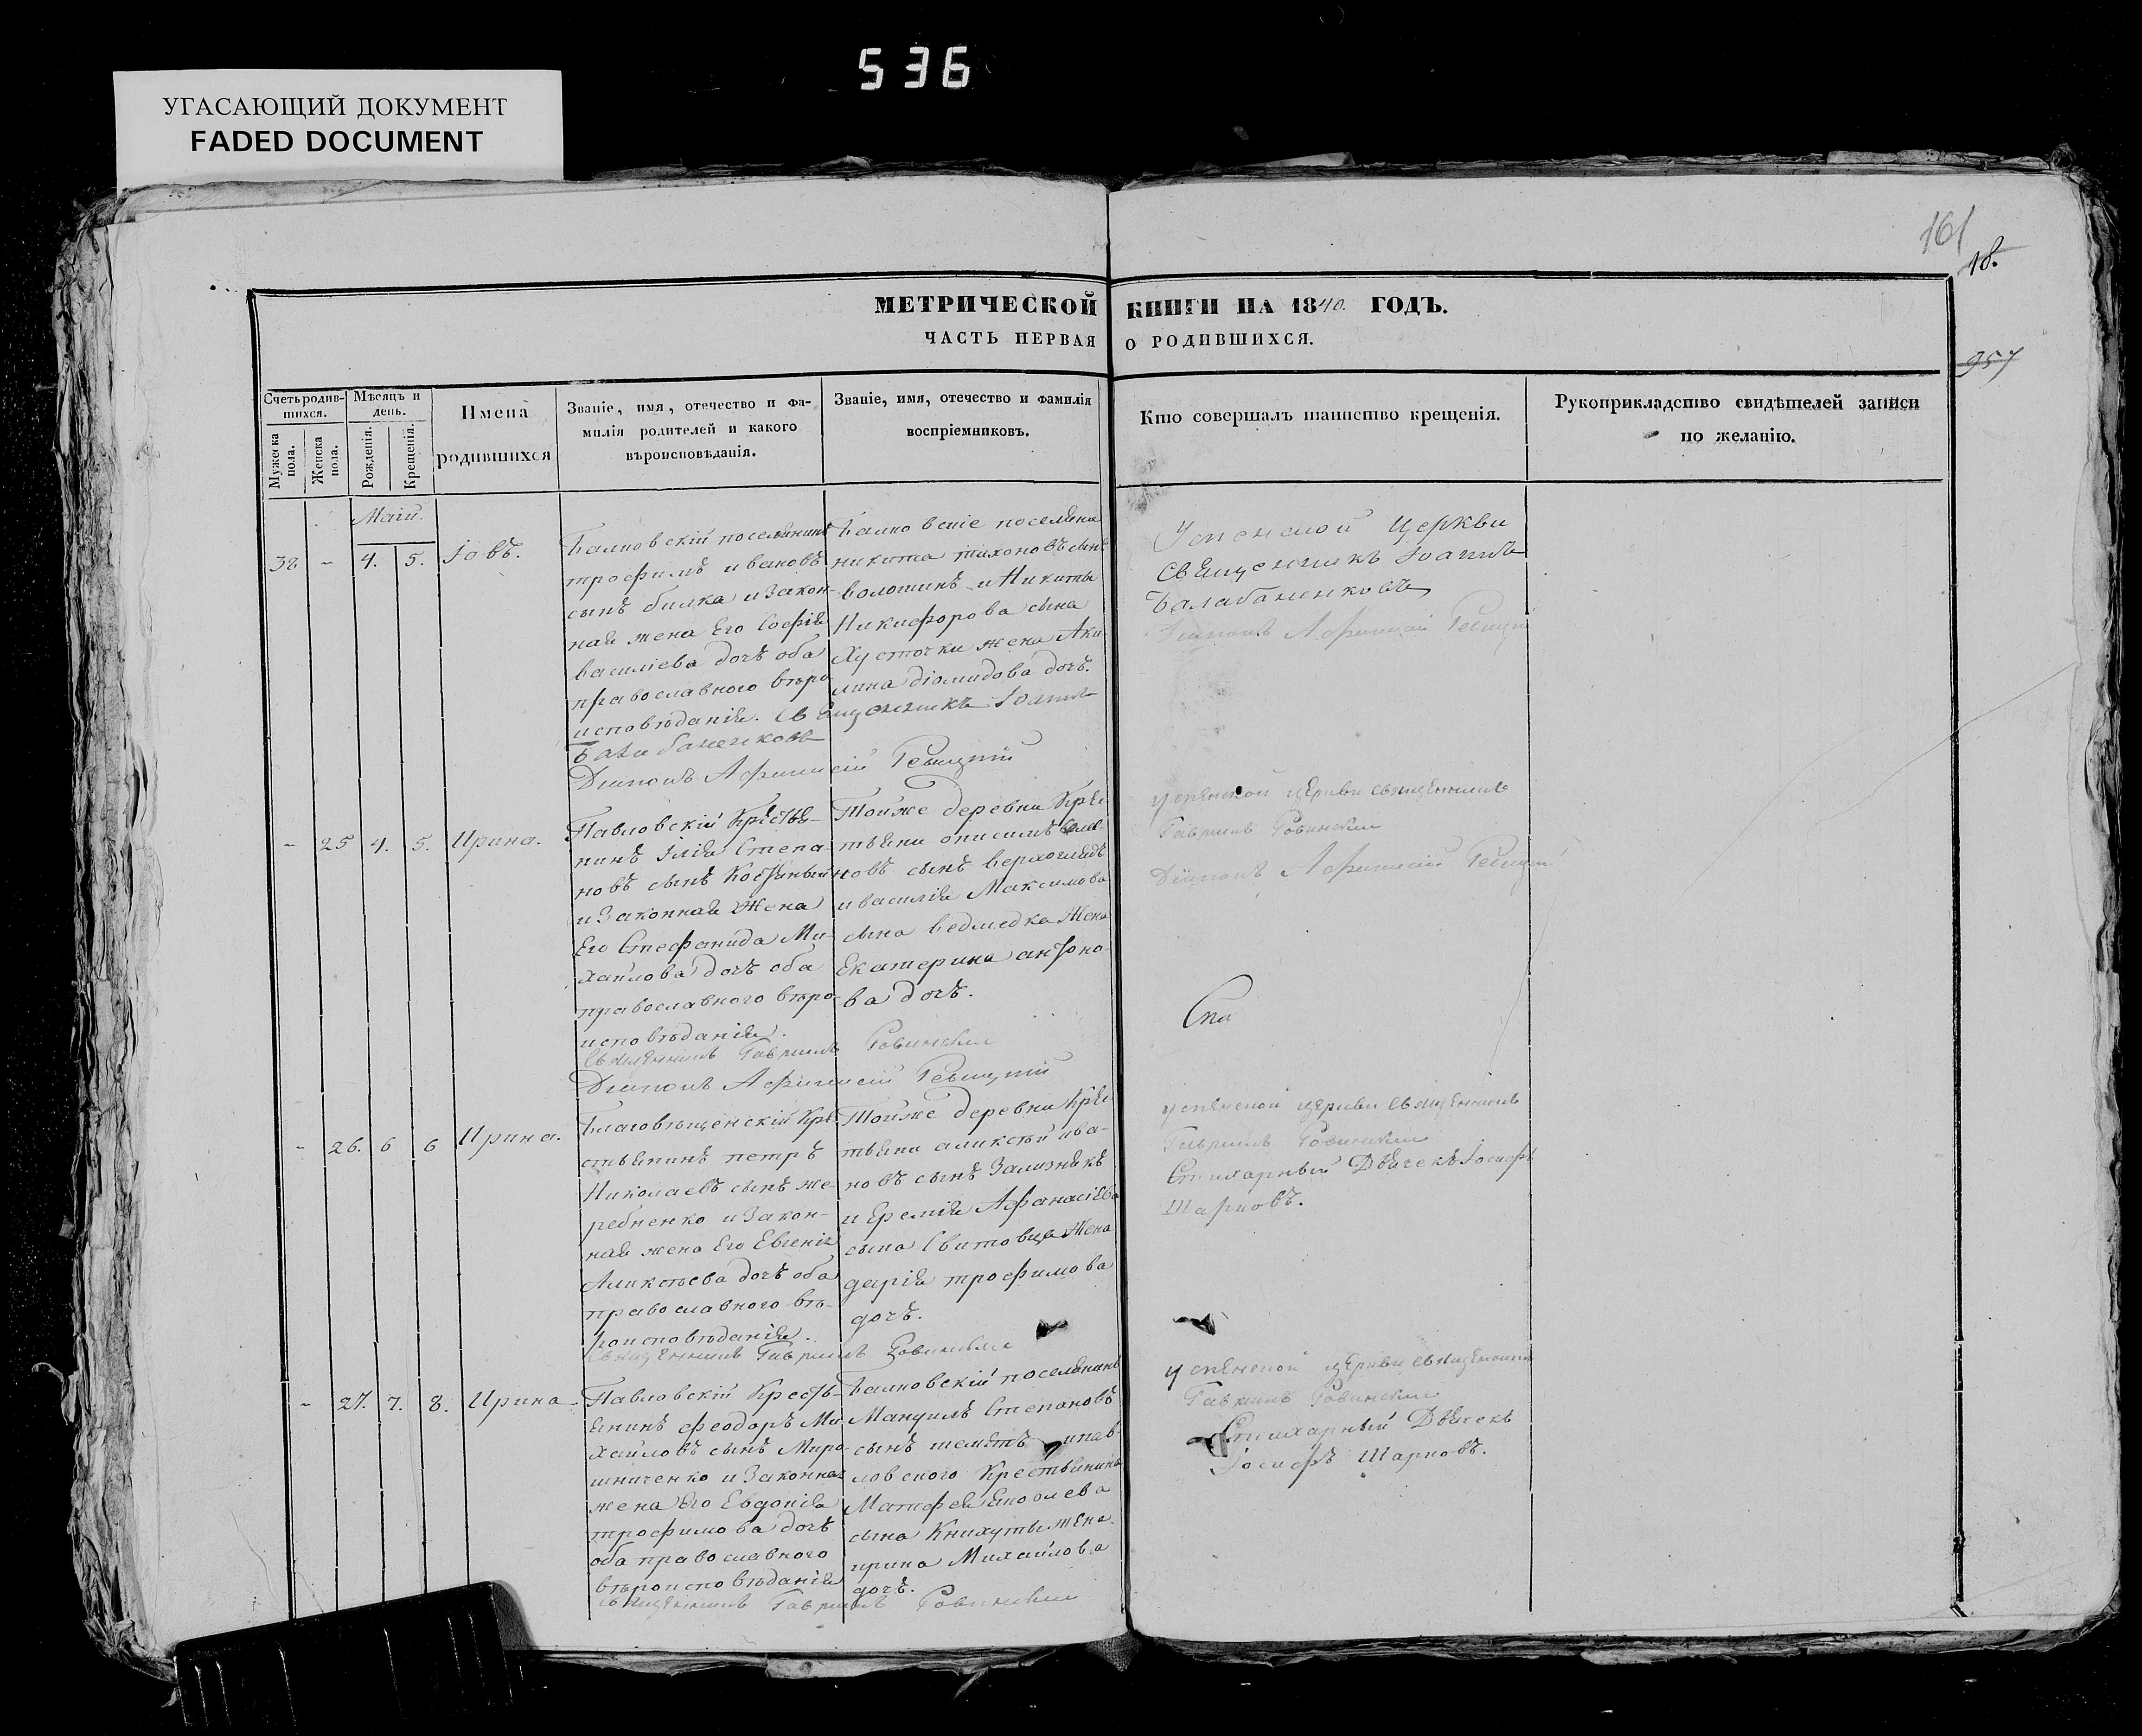 536
УГАСАЮЩИЙ ДОКУМЕНТ
FADED DOCUMENT
161
18.
957
МЕТРИЧЕСКОЙ КНИГИ НА 1840. ГОДЪ.
ЧАСТЬ ПЕРВАЯ О РОДИВШИХСЯ.
Счетъ родив-
шихся.
Мужеска пола.
Женска пола.
Мѣсяцъ и
день.
Рожденія.
Крещенія.
Имена
родившихся
Званіе, имя, отечество и фа-
милія родителей и какого
вѣроисповѣданія.
Званіе, имя, отечество и фамилія
воспріемниковъ.
Кто совершалъ таинство крещенія.
Рукоприкладство свидѣтелей записи
по желанію.
Маій.
38 - 4. 5. Іовъ.
поселянинъ
трофимъ ивановъ
сынъ билка и закон-
ная жена Его Софія
василіева дочъ оба
православного вѣро
исповѣданія. Священникъ Іоаннъ
Балабаненковъ
Діаконъ
поселяни
никита тихоновъ сынъ
волошинъ и Никиты
Никифорова сына
Хусточки жена Аки-
лина діомидова дочъ.
Успенской Церкви
Священникъ Іоаннъ
Балабаненковъ
Діаконъ
- 25 4. 5. Ирина.
Павловскій Крестья-
нинъ Ілія Степа-
новъ сынъ Костяный
и Законная Жена
Его Стефанида Ми-
хайлова дочъ оба
православного вѣро-
исповѣданія.
Священникъ Гавріилъ Ровинскій
Діаконъ
Тойже деревни Крес
тьяни онисимъ
новъ сынъ
и василія Максимова
сына ведмедка Жена
Екатерина антоно-
ва дочъ.
Успенской церкви священникъ
Гавріилъ Ровинскій
Діаконъ
- 26. 6 6 Ирина.
Благовѣщенскій Кре-
стьянинъ петръ
Николаевъ сынъ же
ребненко и Закон-
ная жена Его Евгенія
Аликсѣева дочъ оба
православного вѣ-
роисповѣданія.
Священникъ Гавріилъ Ровинскій
Тойже деревни Крес
тьяни аликсѣй ива-
новъ сынъ Зализнякъ
и Еремія Афанасіева
сына Жена
дарія трофимова
дочъ.
Успенской церкви священникъ
Гавріилъ Ровинскій
Стихарный Дьячекъ Іосифъ
Шарповъ.
- 27. 7. 8. Ирина
Павловскій Кресть-
янинъ феодоръ Ми
хайловъ сынъ Миро-
шниченко и Законная
жена Его Евдокія
трофимова дочъ
оба православного
вѣроисповѣданія
Священникъ Гавріилъ Ровинскій
поселянинъ
Мануилъ Степановъ
сынъ и пав-
ловского Крестьянина
Матфея Яковлева
сына Книхуты жена
ирина Михайлова
дочъ.
Успенской церкви священникъ
Гавріилъ Ровинскій
Стихарный Дьячекъ
Іосифъ Шарповъ.